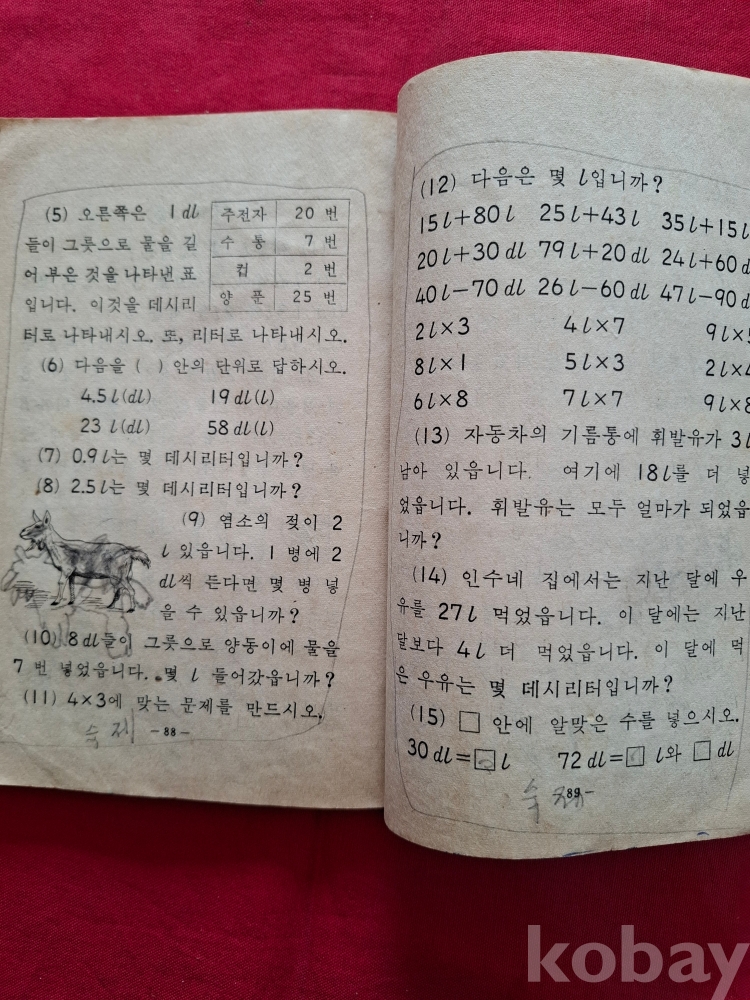 (5) 오른쪽은 1dl
들이 그릇으로 물을 길
어 부은 것을 나타낸 표
입니다. 이것을 데시리
터로 나타내시오. 또, 리터로 나타내시오.
주전자 20 번
수 통 7 번
컵 2 번
양 푼 25 번
(6) 다음을 ( ) 안의 단위로 답하시오.
4.5l(dl) 19dl(l)
23 l(dl) 58dl(l)
(7) 0.9l는 몇 데시리터입니까?
(8) 2.5l는 몇 데시리터입니까?
(9) 염소의 젖이 2
l 있읍니다. 1 병에 2
dl씩 든다면 몇 병 넣
을 수 있읍니까?
(10) 8dl들이 그릇으로 양동이에 물을
7 번 넣었읍니다. 몇 l 들어갔읍니까?
(11) 4×3에 맞는 문제를 만드시오.
숙제
-88-
(12) 다음은 몇 l입니까?
15l+80l 25l+43l 35l+15l
20l+30dl 79l+20dl 24l+60d
40l-70dl 26l-60dl 47l-90d
2l×3 4l×7 9l×5
8l×1 5l×3 2l×4
6l×8 7l×7 9l×8
(13) 자동차의 기름통에 휘발유가 3l
남아 있읍니다. 여기에 18l를 더 넣
었읍니다. 휘발유는 모두 얼마가 되었읍
니까?
(14) 인수네 집에서는 지난 달에 우
유를 27l 먹었읍니다. 이 달에는 지난
달보다 4l 더 먹었읍니다. 이 달에 먹
은 우유는 몇 데시리터입니까?
(15) □ 안에 알맞은 수를 넣으시오.
30dl=□l 72dl=□ l와 □dl
숙제
89-
kobay